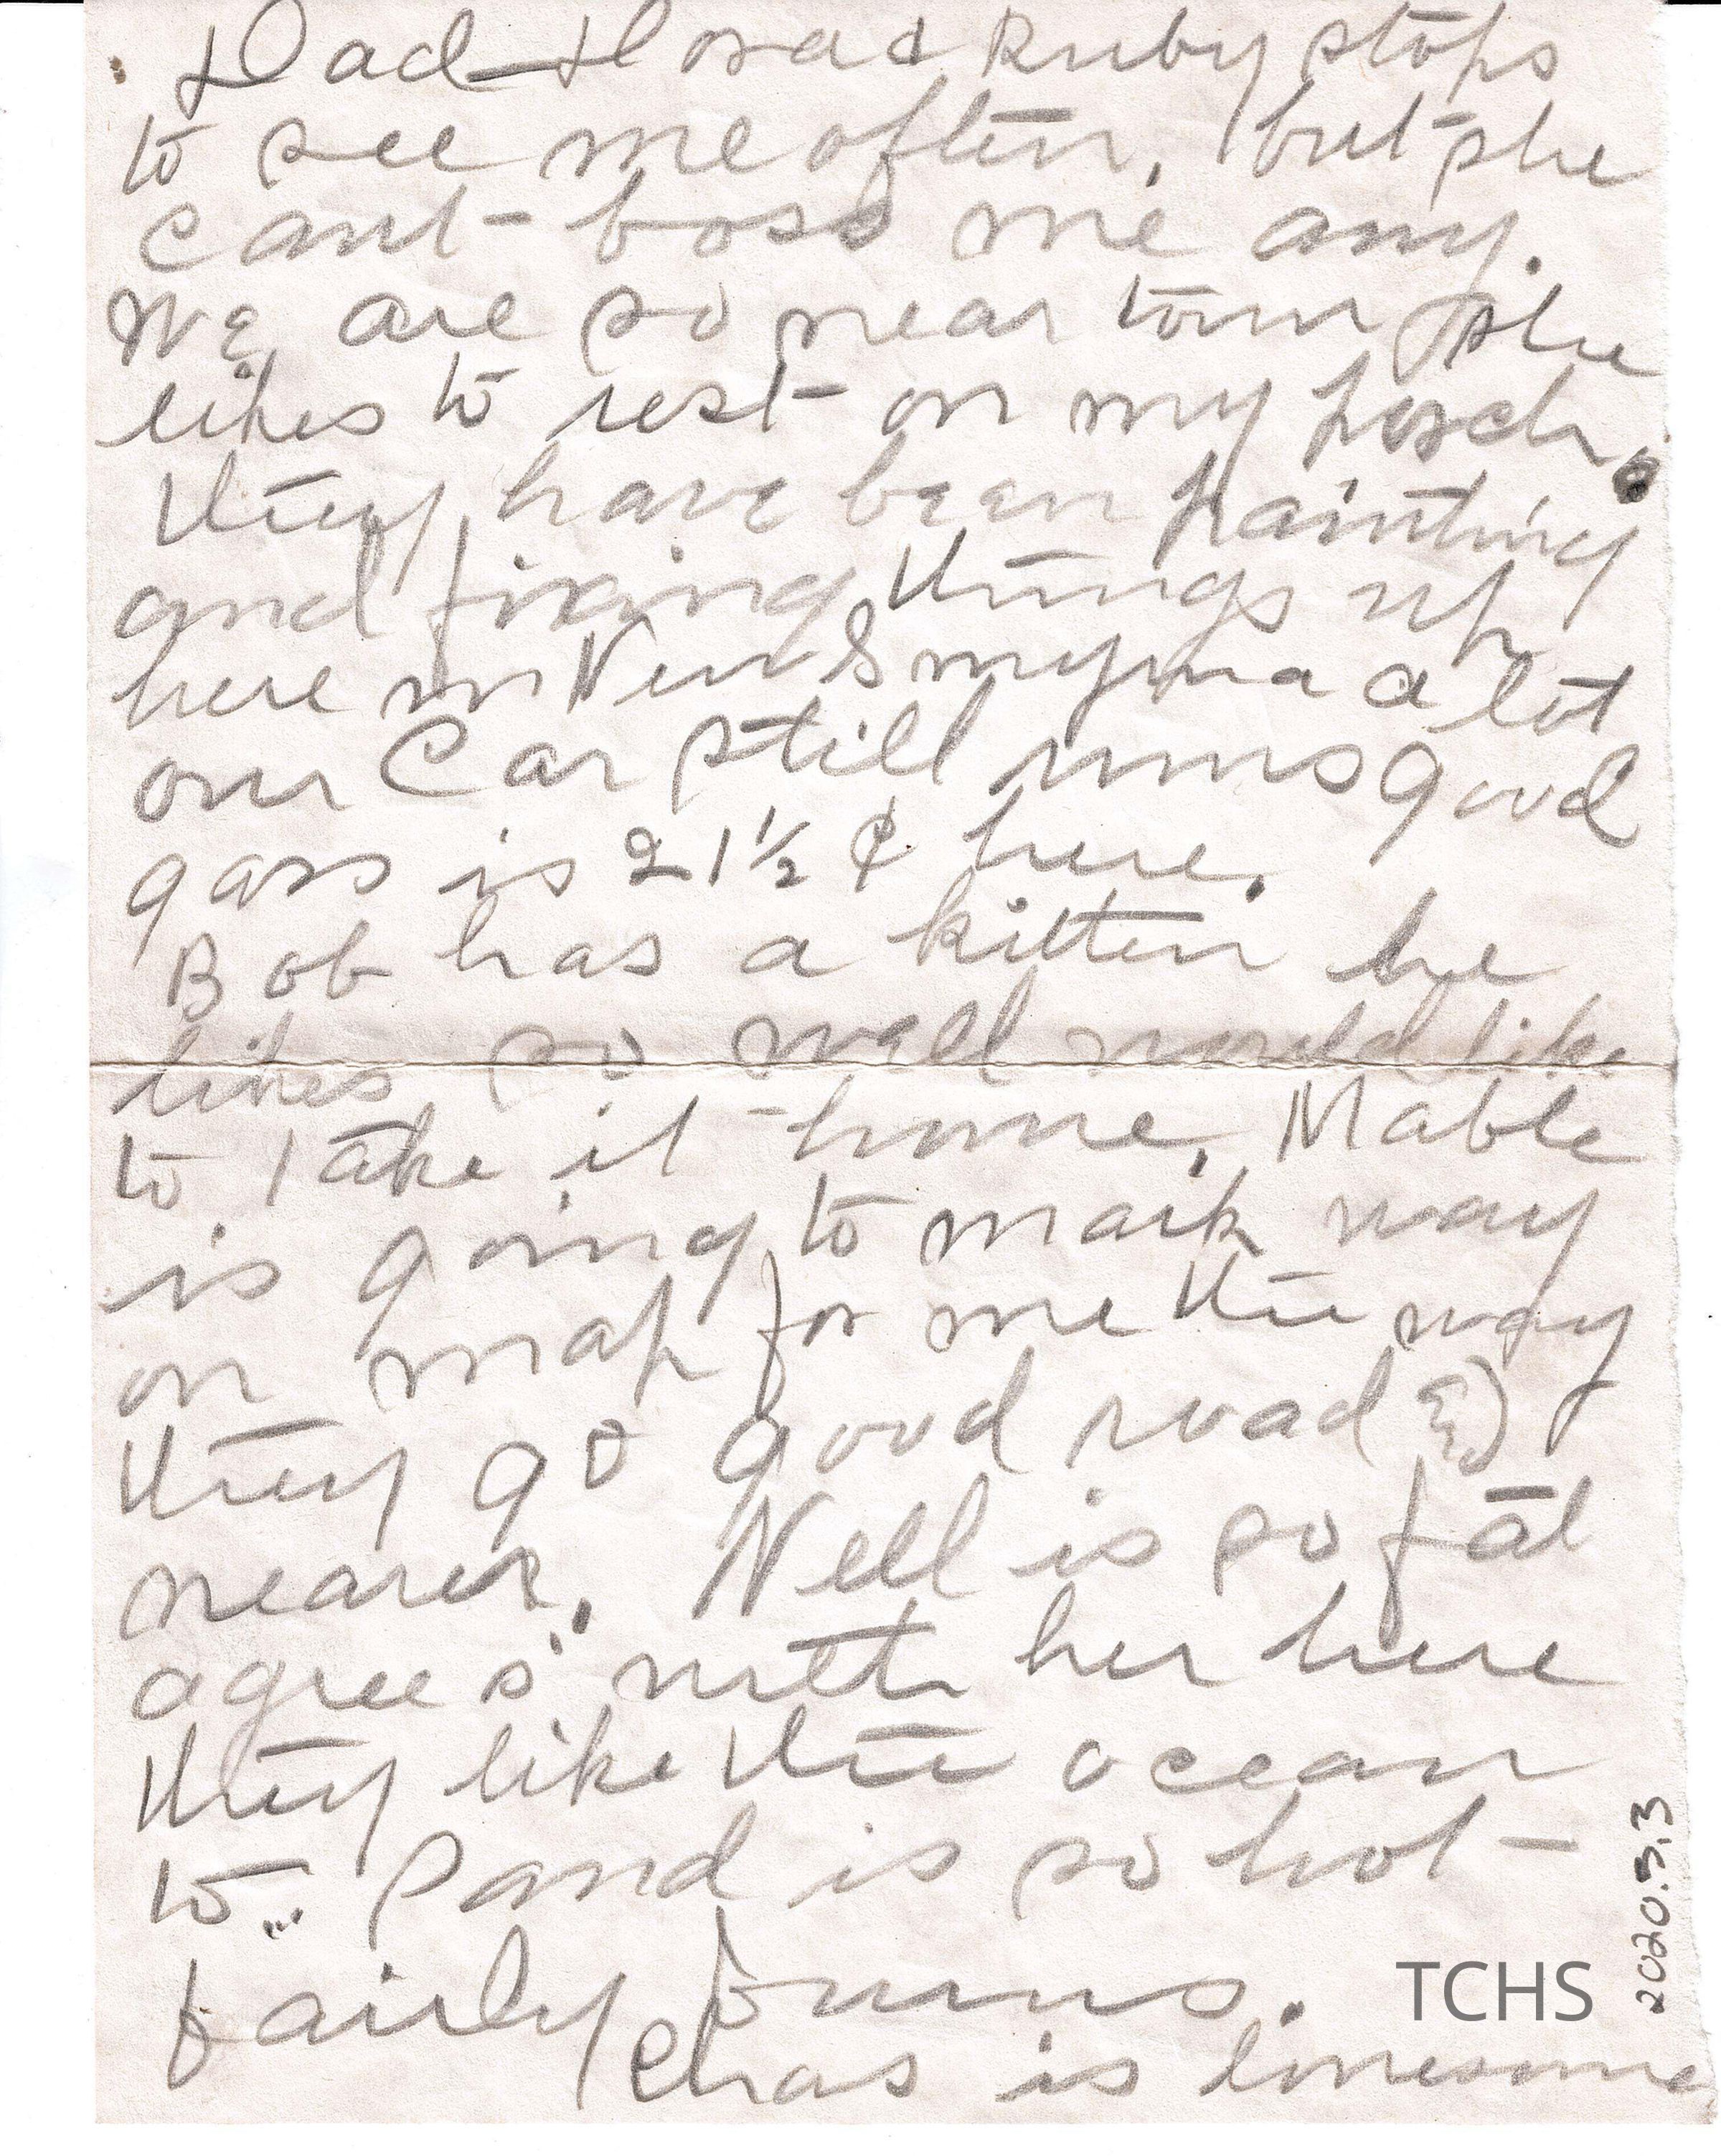 Dad Hosa & Ruby stops
to see me often, but she
cant boss me any.
We are so near town she
likes to rest on my porch.
they have been painting
and fixing things up
here in New Smyrna a lot
our Car still runs good
gass is 21½ ¢ here.
Bob has a kitten he
likes so well would like
to take it home. Mable
is going to mark way
on map for me the way
they go good road &
nearer. Nell is so fat
agrees with her here
they like the ocean
to.. Sand is so hot
fairly burns.
Chas is lonesome
TCHS
2020.3.3